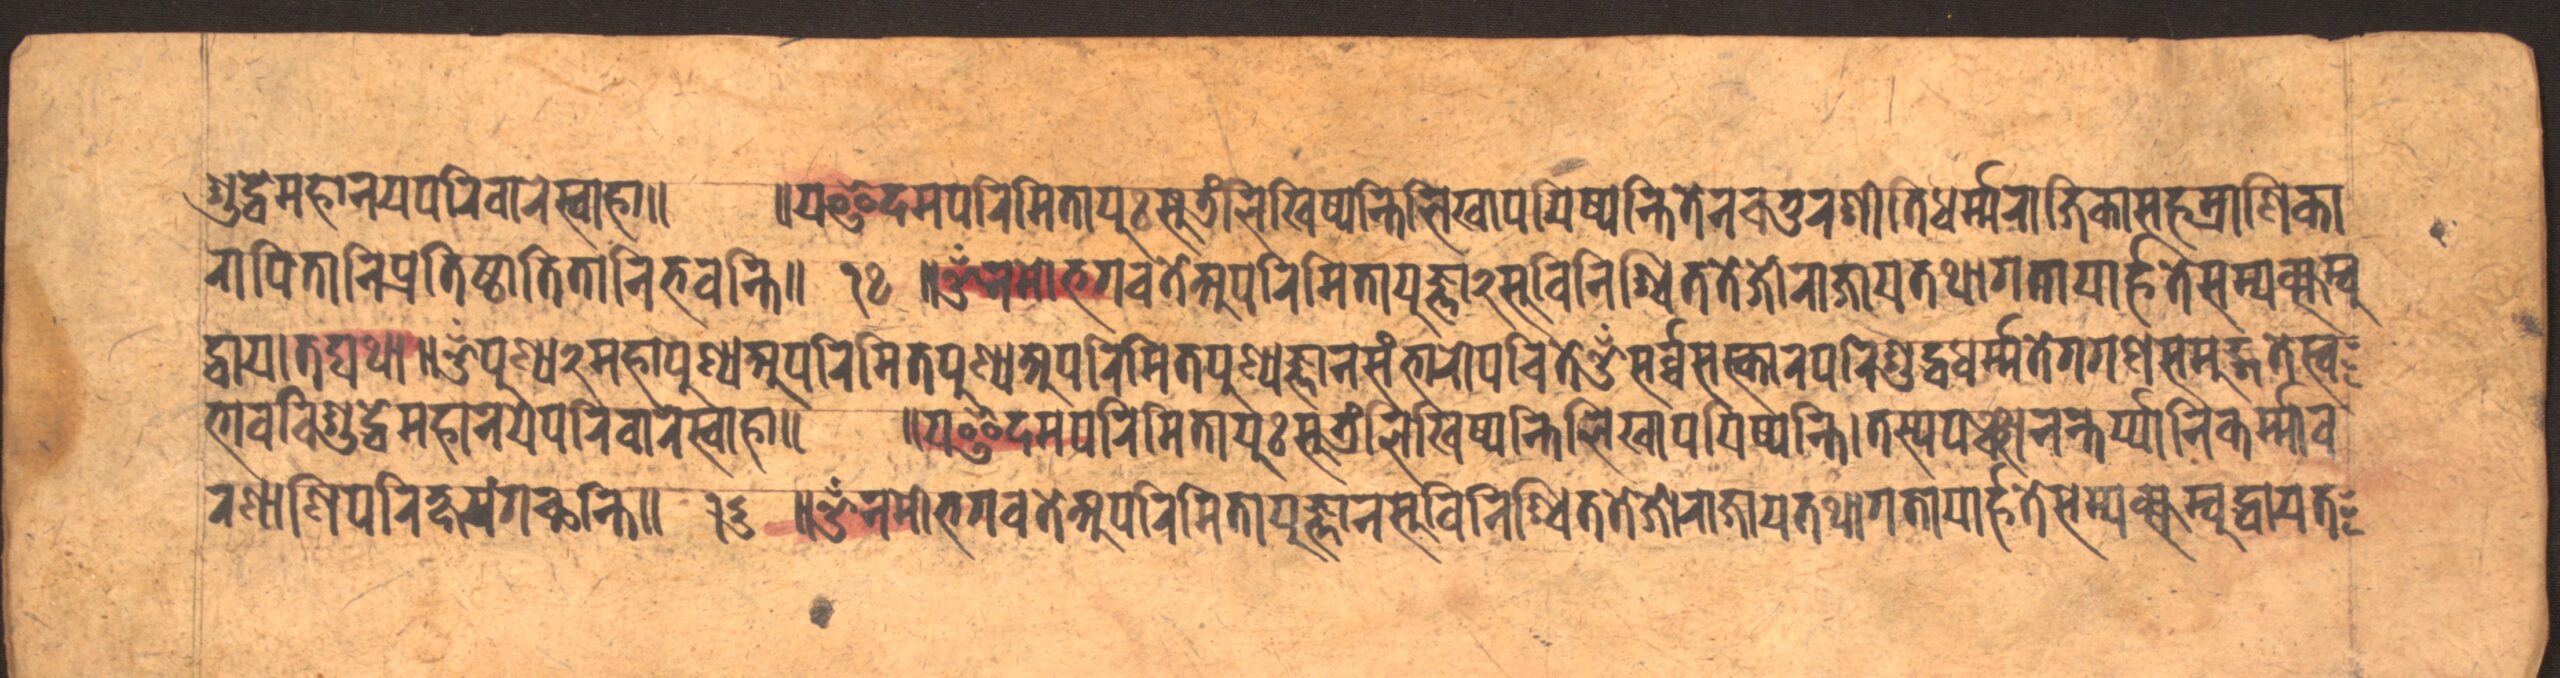 शुद्धेमहानयपरिवारेस्वाहा॥ ॥यइदमपरिमितायुःसूत्रंलिखिष्यन्तिलिखापयिष्यन्तितेनचतुरशीतिधर्म्मराजिकासहस्राणिका
रापितानिप्रतिष्ठातितानिभवन्ति॥ १२ ॥ॐनमोभगवतेअपरिमितायुज्ञा२सुविनिश्चिततेजोराजायतथागतायार्हतेसम्यक्सम्बु
द्धाय।तद्यथा॥ॐपुण्य२महापुण्यअपरिमितपुण्यअपरिमितपुण्यज्ञानसंभारोपचितेॐसर्व्वसस्कारपरिशुद्धधर्म्मतेगगणसमुद्गतेस्व
भावविशुद्धेमहानयेपरिवारेस्वाहा॥ ॥यइदमपरिमितायुःसूत्रंलिखिष्यन्तिलिखापयिष्यन्ति।तस्यपञ्चानन्तर्य्यानिकर्म्माव
रणाणिपरिक्षयंगच्छन्ति॥ १३ ॥ॐनमोभगवतेअपरिमितायुज्ञानसुविनिश्चिततेजोराजायतथागतायार्हतेसम्यक्सम्बुद्धायत